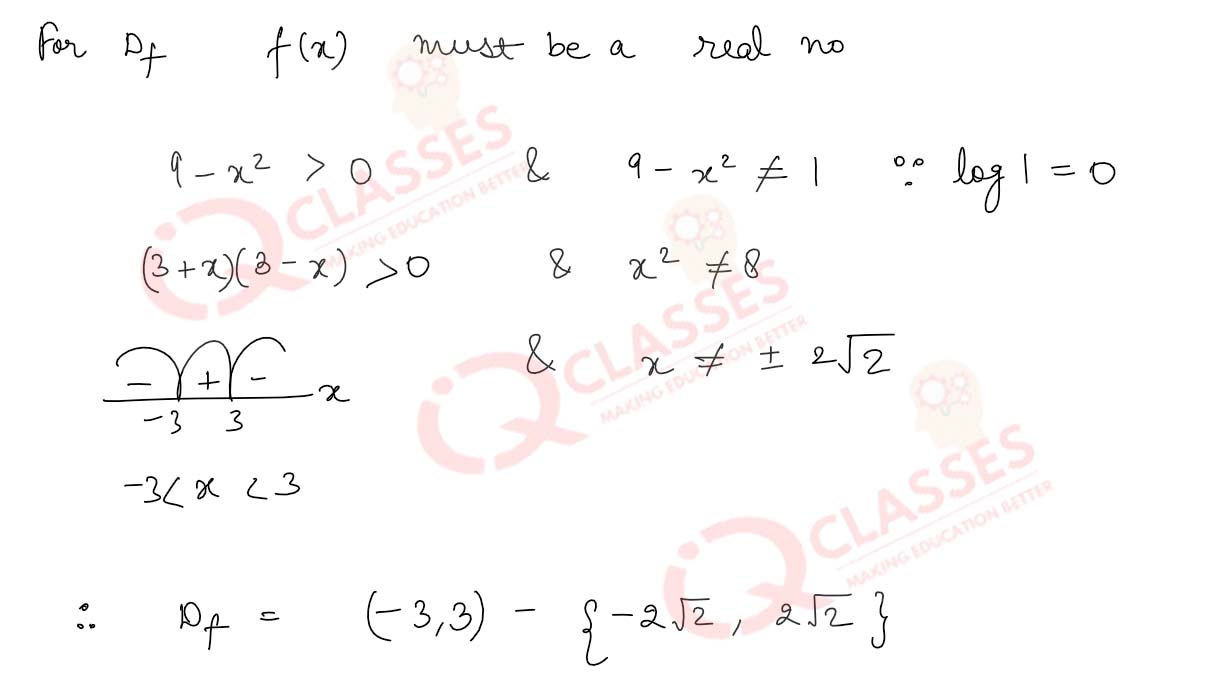 For Df f(x) must be a real no
9 - x² > 0 & 9 - x² ≠ 1 ∵ log 1 = 0
(3+x)(3-x) > 0 & x² ≠ 8
- + - x & x ≠ ± 2√2
-3 3
-3 < x < 3
∴ Df = (-3,3) - {-2√2, 2√2}
IQ CLASSES
MAKING EDUCATION BETTER
IQ CLASSES
MAKING EDUCATION BETTER
IQ CLASSES
MAKING EDUCATION BETTER